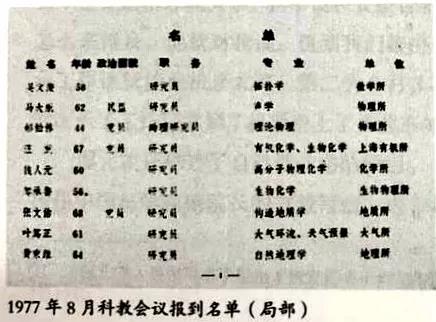 名 单
姓 名 年龄 政治面貌 职 务 专 业 单 位
吴文俊 58 研究员 拓扑学 数学所
马大猷 62 民盟 研究员 声学 物理所
郝柏林 44 党员 助理研究员 理论物理 物理所
汪 猷 67 党员 研究员 有机化学、生物化学 上海有机所
钱人元 60 研究员 高分子物理化学 化学所
邹承鲁 研究员 生物化学 生物物理所
张文佑 68 党员 研究员 构造地质学 地质所
叶笃正 61 研究员 大气环流、天气预报 大气所
黄秉维 64 研究员 自然地理学 地理所
— 1 —
1977年8月科教会议报到名单（局部）